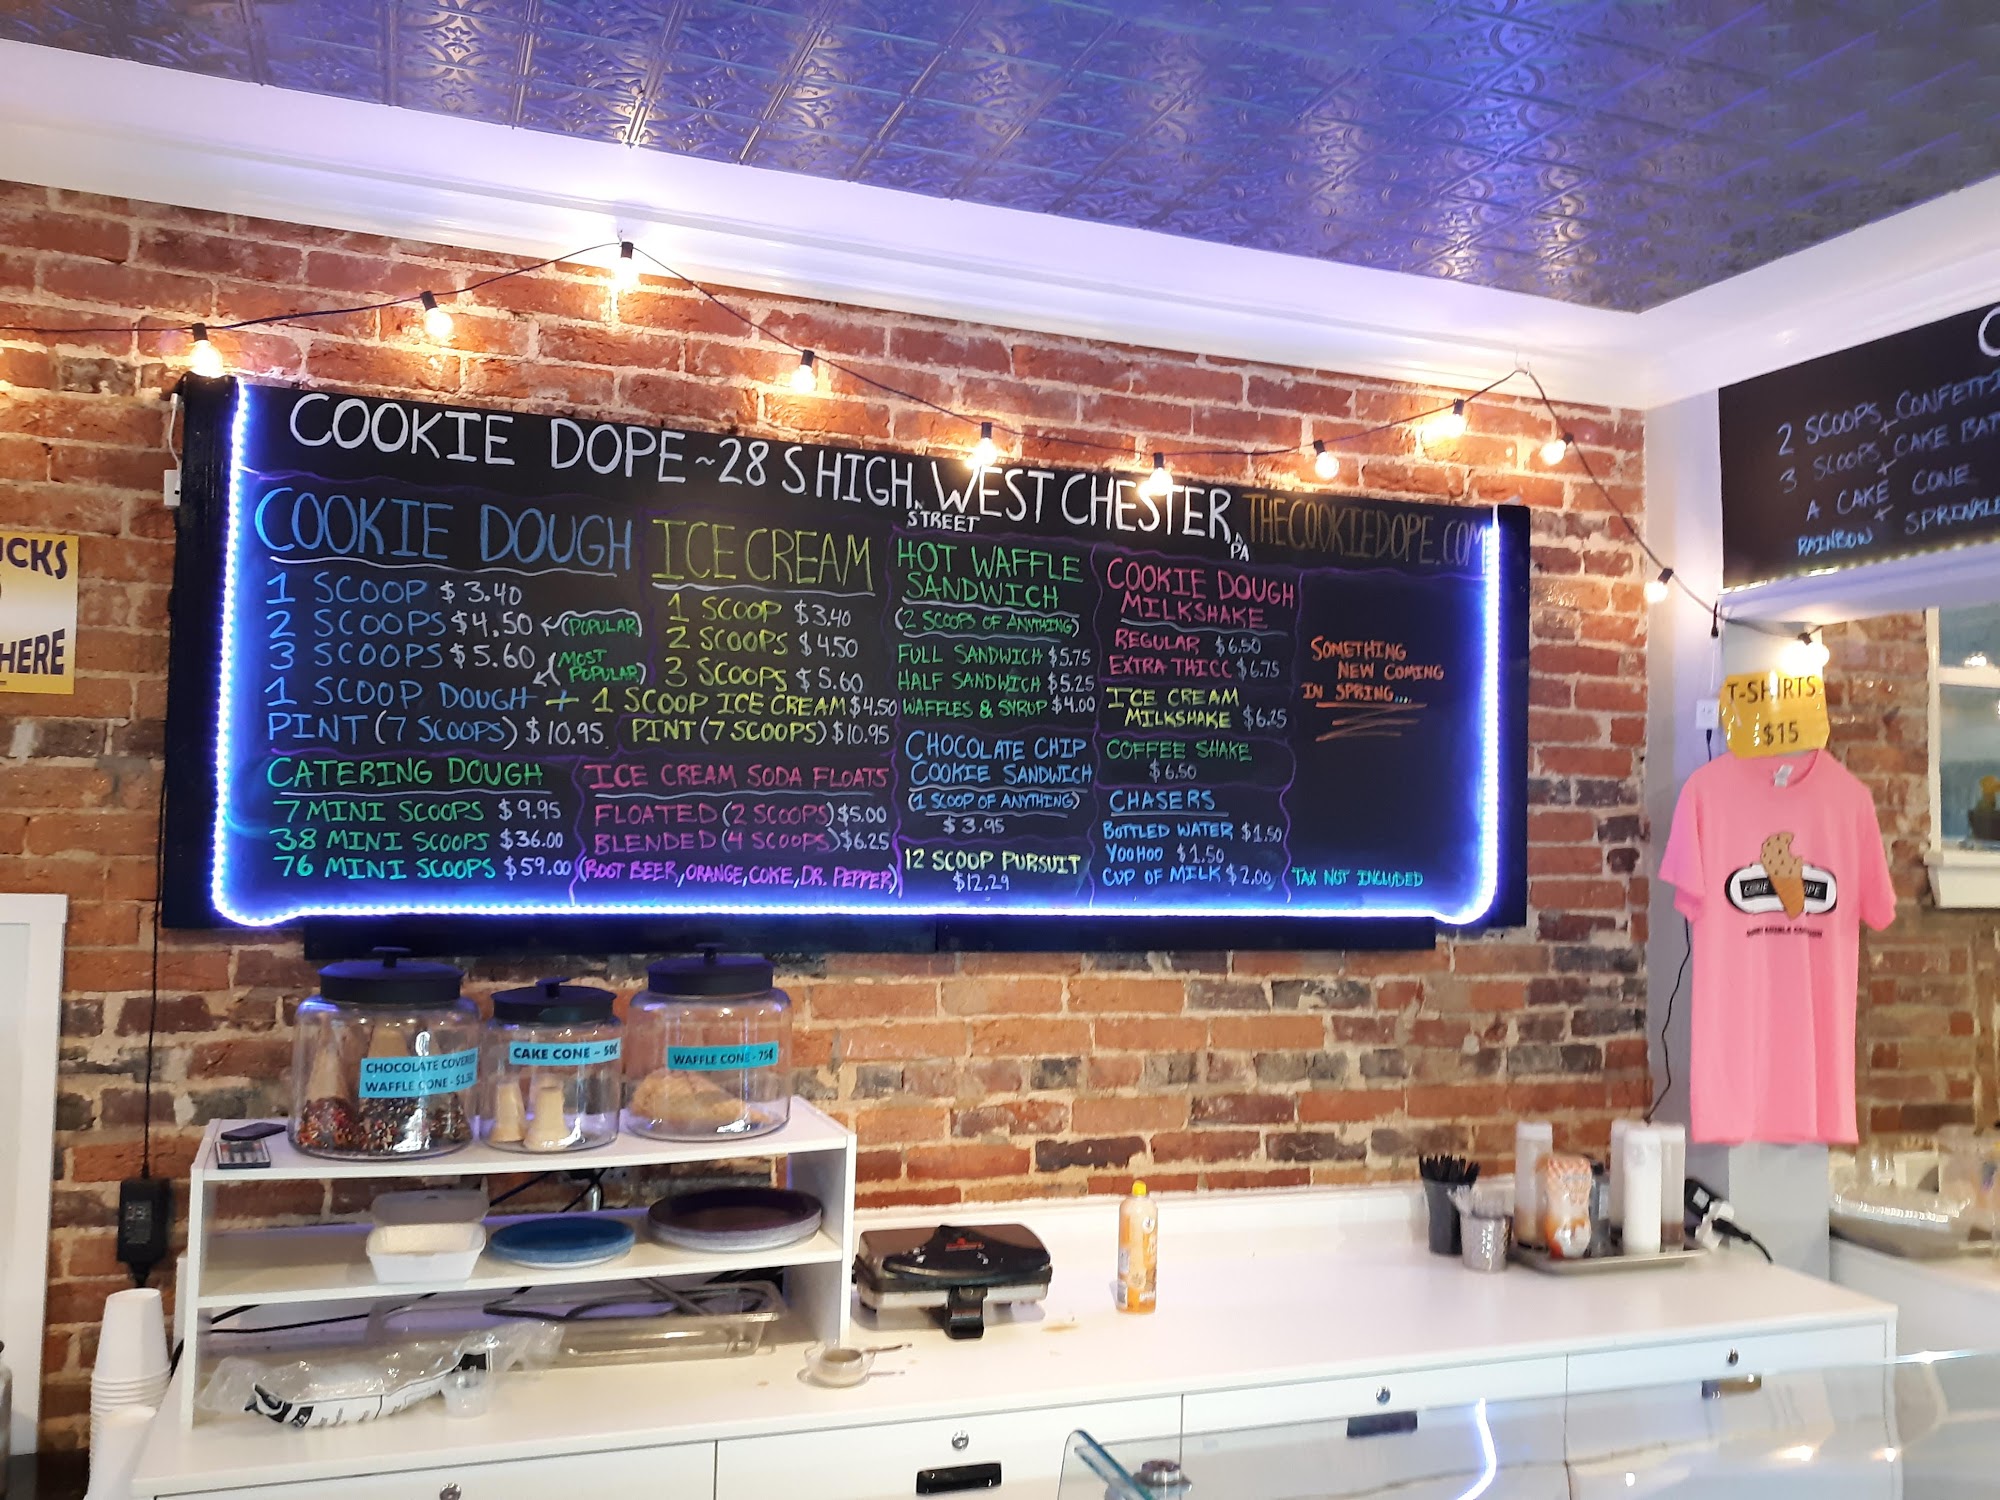 COOKIE DOPE ~ 28 S HIGH STREET, WEST CHESTER, PA THECOOKIEDOPE.COM
COOKIE DOUGH
1 SCOOP $3.40
2 SCOOPS $4.50 (POPULAR)
3 SCOOPS $5.60 (MOST POPULAR)
1 SCOOP DOUGH + 1 SCOOP ICE CREAM $4.50
PINT (7 SCOOPS) $10.95
ICE CREAM
1 SCOOP $3.40
2 SCOOPS $4.50
3 SCOOPS $5.60
PINT (7 SCOOPS) $10.95
CATERING DOUGH
7 MINI SCOOPS $9.95
38 MINI SCOOPS $36.00
76 MINI SCOOPS $59.00
ICE CREAM SODA FLOATS
FLOATED (2 SCOOPS) $5.00
BLENDED (4 SCOOPS) $6.25
(ROOT BEER, ORANGE, COKE, DR. PEPPER)
HOT WAFFLE
SANDWICH
(2 SCOOPS OF ANYTHING)
FULL SANDWICH $5.75
HALF SANDWICH $5.25
WAFFLES & SYRUP $4.00
CHOCOLATE CHIP
COOKIE SANDWICH
(1 SCOOP OF ANYTHING)
$3.95
12 SCOOP PURSUIT
$12.29
COOKIE DOUGH
MILKSHAKE
REGULAR $6.50
EXTRA THICC $6.75
ICE CREAM
MILKSHAKE $6.25
COFFEE SHAKE
$6.50
CHASERS
BOTTLED WATER $1.50
YOOHOO $1.50
CUP OF MILK $2.00
SOMETHING
NEW COMING
IN SPRING....
TAX NOT INCLUDED
2 SCOOPS CONFETTI
+
3 SCOOPS CAKE BAT
+
A CAKE CONE
+
RAINBOW SPRINKLE
T-SHIRTS
$15
UCKS
HERE
CHOCOLATE COVERED
WAFFLE CONE - $1.50
CAKE CONE - 50¢
WAFFLE CONE - 75¢